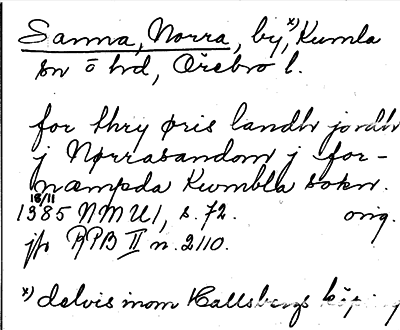 Sanna, Norra, by, x) Kumla
sn o hd, Örebro l.
for thry øris landh jordh
j Nørrasandom j for-
næmpda Kumbla sokn.
18/11
1385 NMU1, s. 72. orig.
jfr RPB II n. 2110.
x) delvis inom Hallsbergs köping